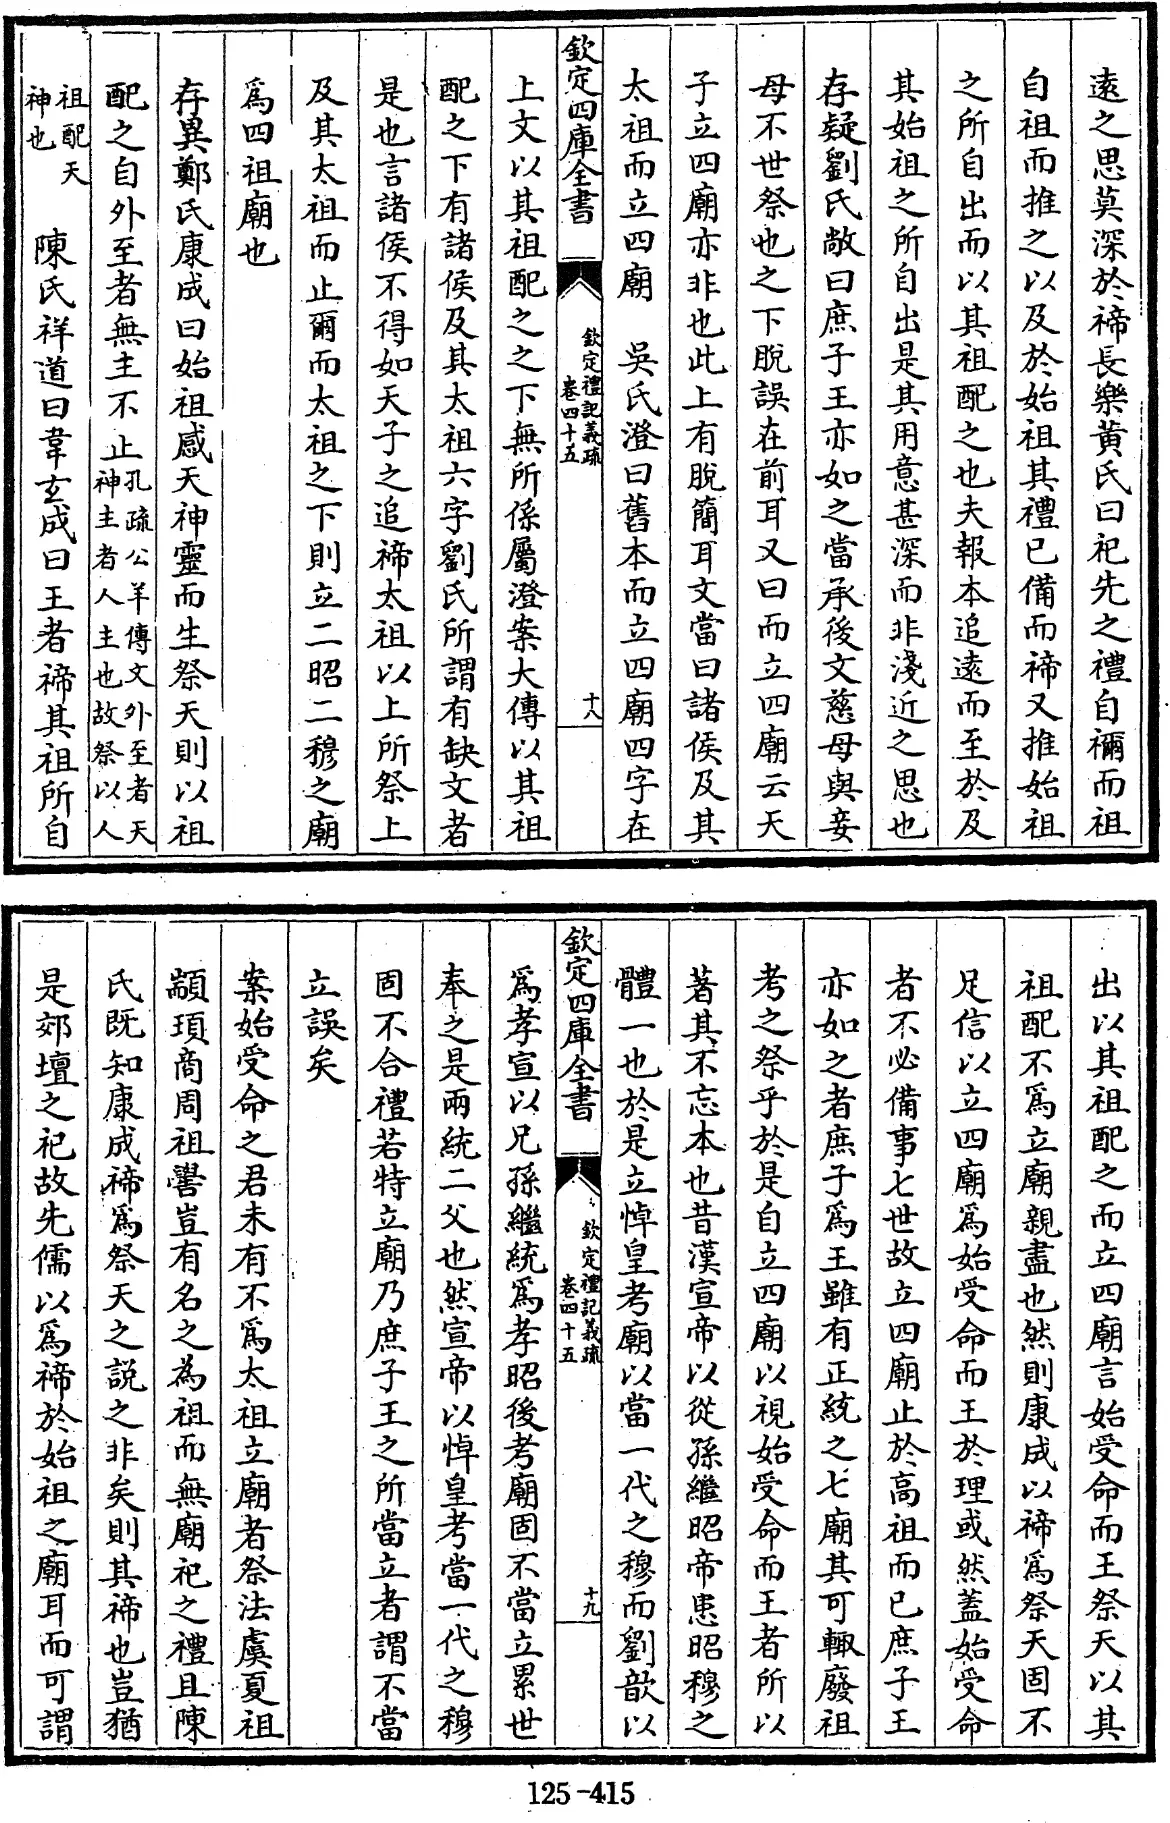 遠之思莫深於禘長樂黃氏曰祀先之禮自禰而祖
自祖而推之以及於始祖其禮已備而禘又推始祖
之所自出而以其祖配之也夫報本追遠而至於及
其始祖之所自出是其用意甚深而非淺近之思也
存疑劉氏敞曰庶子王亦如之當承後文慈母與妾
母不世祭也之下脫誤在前耳又曰而立四廟云天
子立四廟亦非也此上有脫簡耳文當曰諸侯及其
太祖而立四廟　吳氏澄曰舊本而立四廟四字在
欽定四庫全書
欽定禮記義疏
卷四十五
十八
上文以其祖配之之下無所係屬澄案大傳以其祖
配之下有諸侯及其太祖六字劉氏所謂有缺文者
是也言諸侯不得如天子之追禘太祖以上所祭上
及其太祖而止爾而太祖之下則立二昭二穆之廟
爲四祖廟也
存異鄭氏康成曰始祖感天神靈而生祭天則以祖
配之自外至者無主不止孔疏公羊傳文外至者天
神主者人主也故祭以人
祖配天
神也　陳氏祥道曰韋玄成曰王者禘其祖所自
出以其祖配之而立四廟言始受命而王祭天以其
祖配不爲立廟親盡也然則康成以禘爲祭天固不
足信以立四廟爲始受命而王於理或然蓋始受命
者不必備事七世故立四廟止於高祖而已庶子王
亦如之者庶子爲王雖有正統之七廟其可輙廢祖
考之祭乎於是自立四廟以視始受命而王者所以
著其不忘本也昔漢宣帝以從孫繼昭帝患昭穆之
體一也於是立悼皇考廟以當一代之穆而劉歆以
欽定四庫全書
欽定禮記義疏
卷四十五
十九
爲孝宣以兄孫繼統爲孝昭後考廟固不當立累世
奉之是兩統二父也然宣帝以悼皇考當一代之穆
固不合禮若特立廟乃庶子王之所當立者謂不當
立誤矣
案始受命之君未有不爲太祖立廟者祭法虞夏祖
顓頊商周祖嚳豈有名之為祖而無廟祀之禮且陳
氏既知康成禘爲祭天之説之非矣則其禘也豈猶
是郊壇之祀故先儒以爲禘於始祖之廟耳而可謂
125-415